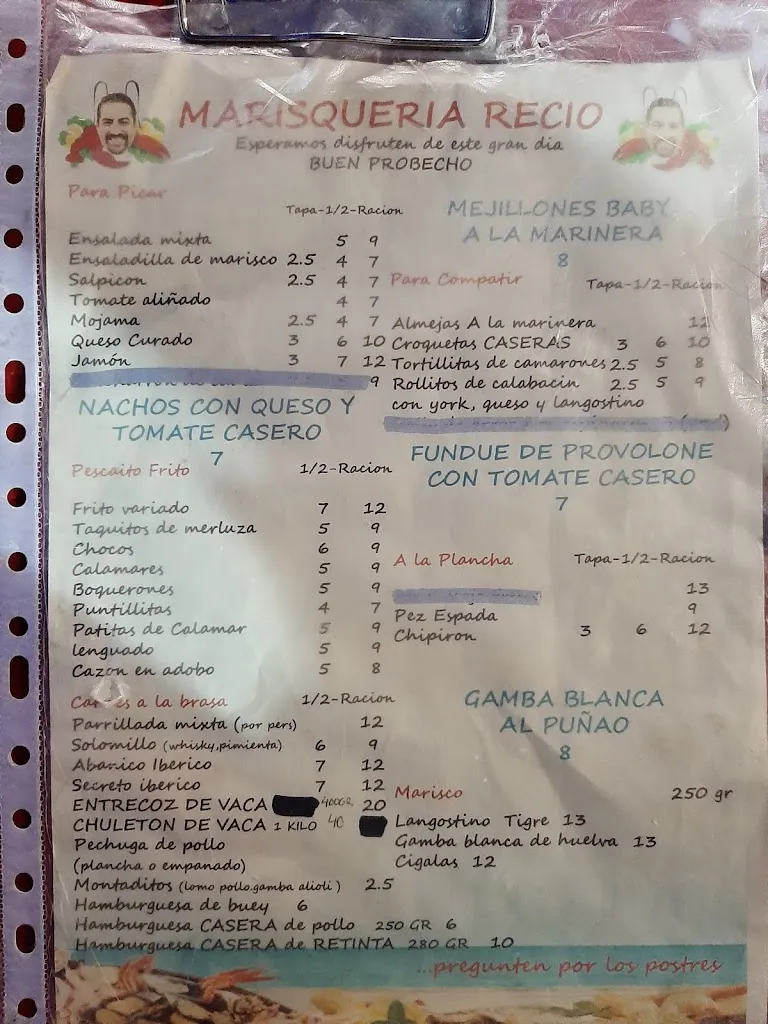 MARISQUERIA RECIO
Esperamos disfruten de este gran dia
BUEN PROBECHO
Para Picar
Tapa-1/2-Racion
Ensalada mixta 5 9
Ensaladilla de marisco 2.5 4 7
Salpicon 2.5 4 7
Tomate aliñado 4 7
Mojama 2.5 4 7
Queso Curado 3 6 10
Jamón 3 7 12
9
NACHOS CON QUESO Y
TOMATE CASERO
7
Pescaito Frito 1/2-Racion
Frito variado 7 12
Taquitos de merluza 5 9
Chocos 6 9
Calamares 5 9
Boquerones 5 9
Puntillitas 4 7
Patitas de Calamar 5 9
lenguado 5 9
Cazon en adobo 5 8
Carnes a la brasa 1/2-Racion
Parrillada mixta (por pers) 12
Solomillo (whisky,pimienta) 6 9
Abanico Iberico 7 12
Secreto iberico 7 12
ENTRECOZ DE VACA 400GR 20
CHULETON DE VACA 1 KILO 40
Pechuga de pollo
(plancha o empanado)
Montaditos (lomo pollo.gamba alioli) 2.5
Hamburguesa de buey 6
Hamburguesa CASERA de pollo 250 GR 6
Hamburguesa CASERA de RETINTA 280 GR 10
MEJILLONES BABY
A LA MARINERA
8
Para Compatir Tapa-1/2-Racion
Almejas A la marinera 12
Croquetas CASERAS 3 6 10
Tortillitas de camarones 2.5 5 8
Rollitos de calabacin 2.5 5 9
con york, queso y langostino
FUNDUE DE PROVOLONE
CON TOMATE CASERO
7
A la Plancha Tapa-1/2-Racion
13
Pez Espada 9
Chipiron 3 6 12
GAMBA BLANCA
AL PUÑAO
8
Marisco 250 gr
Langostino Tigre 13
Gamba blanca de huelva 13
Cigalas 12
...pregunten por los postres